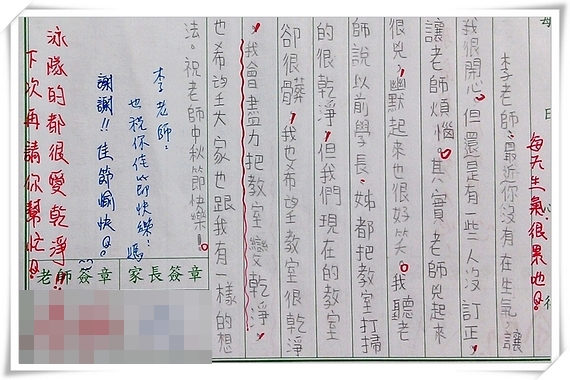 李老師：最近你沒有在生氣，讓
我很開心。但還是有一些人沒訂正，
讓老師煩惱。其實老師兇起來
很兇，幽默起來也很好笑。我聽老
師說以前學長、姊都把教室打掃
的很乾淨，但我們現在的教室
卻很髒，我也希望教室很乾淨
，我會盡力把教室變乾淨，
也希望大家也跟我有一樣的想
法。祝老師中秋節快樂！
每天生氣很累也！
李老師：
也祝你佳節快樂！媽
謝謝!!佳節愉快！
泳隊的都很愛乾淨!!
下次再請你幫忙！
老師簽章
家長簽章